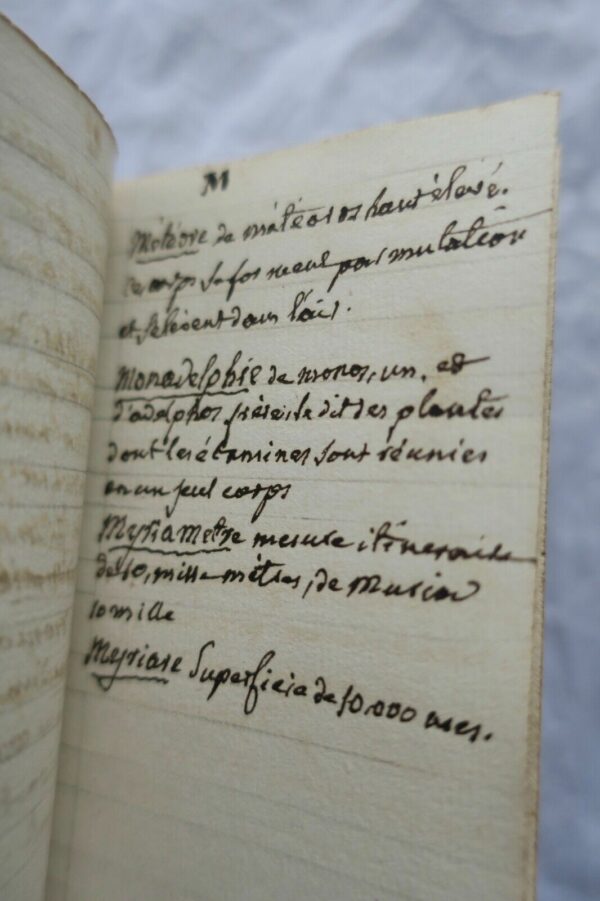 M
Météore de météoros haut élevé.
ce corps se forment par mutation
et s'élèvent dans l'air.
Monadelphie de monos, un, et
d'adelphos frère, se dit des plantes
dont les étamines sont réunies
en un seul corps
Myriametre mesure itineraire
de 10, mille mètres, de
10 mille
Myriare Superficie de 10.000 ares.